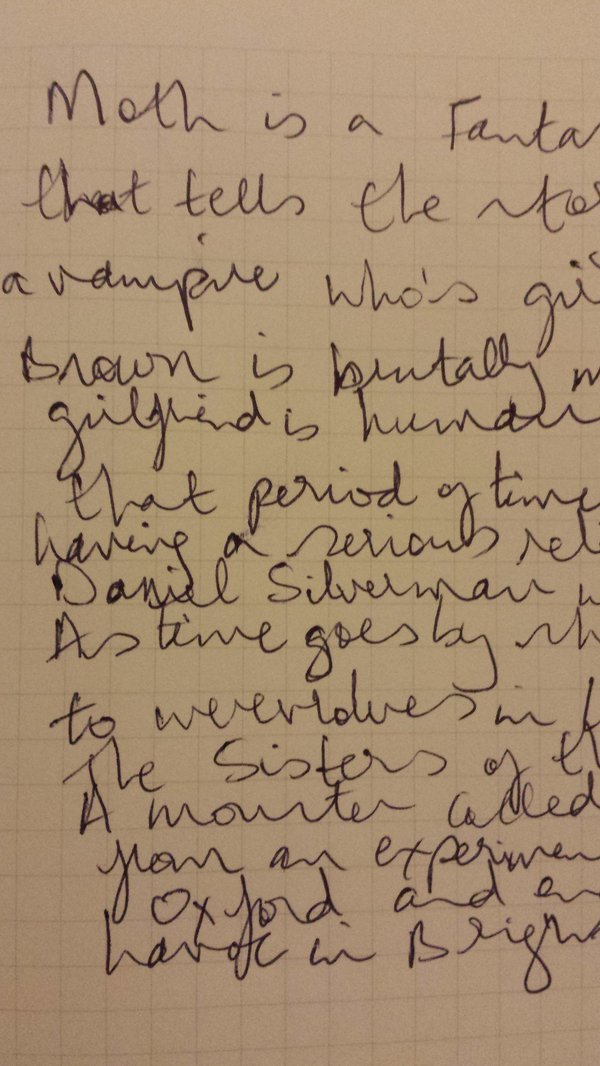 Moth is a Fanta
that tells the stor
a vampire who's gir
Brown is brutally m
girlfriend is human
that period of time
having a serious rel
Daniel Silverman w
As time goes by sh
to werewolves in
The Sisters of th
A monster called
from an experimen
Oxford and en
havoc in Bright